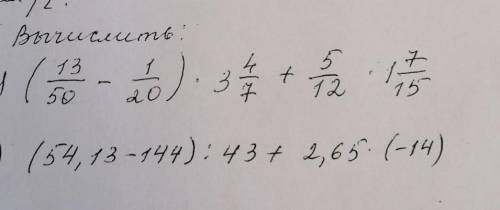 Вычислить:
(13/50 - 1/20) · 3 4/7 + 5/12 · 1 7/15
) (54,13-144) : 43 + 2,65 · (-14)